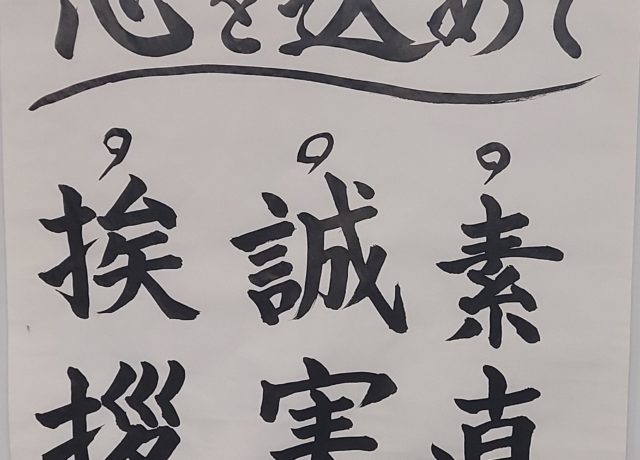 心を込めて
素直
誠実
挨拶